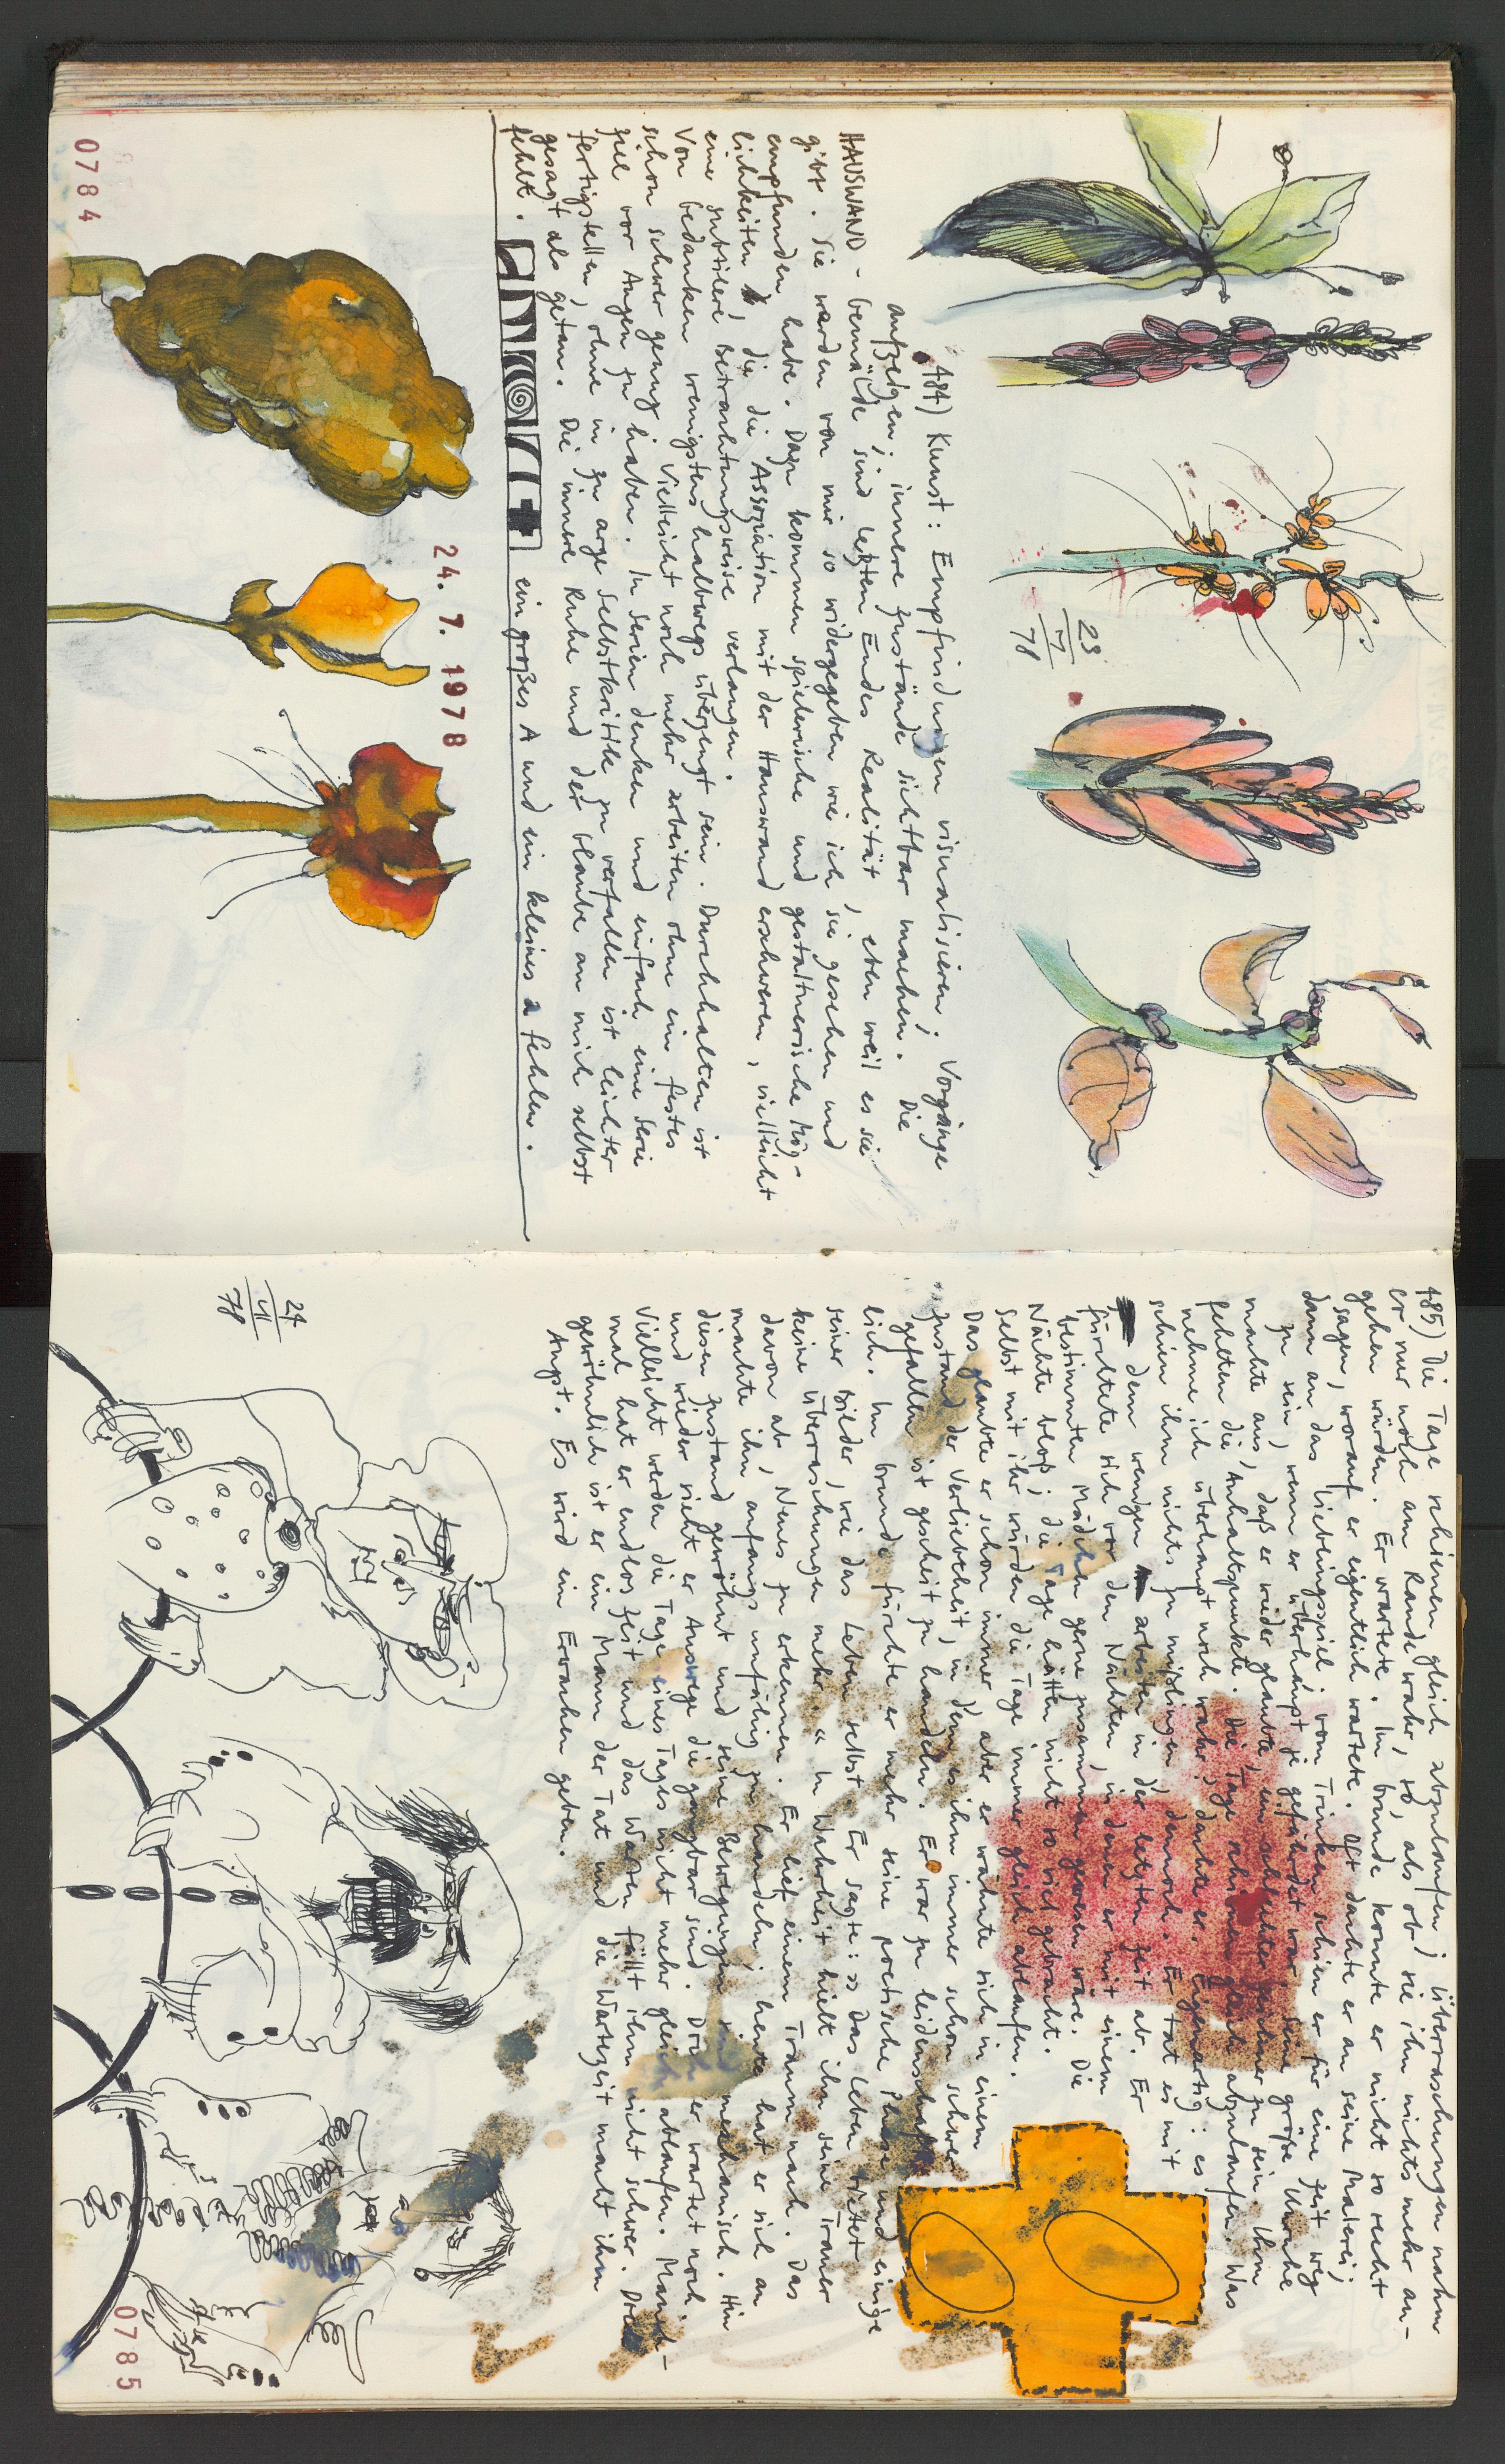 23
7
78
484) Kunst: Empfindungen visualisieren; Vorgänge
aufzeigen; innere Zustände sichtbar machen. Die
HAUSWAND-Gemälde sind letzten Endes Realität, eben weil es sie
gibt. Sie wurden von mir so widergegeben wie ich sie gesehen und
empfunden habe. Dazu kommen spielerische und gestalterische Mög-
lichkeiten, die die Assoziation mit der Hauswand erschweren, vielleicht
eine subtilere Betrachtungsweise verlangen.
Von Gedanken wenigstens halbwegs überzeugt sein. Durchhalten ist
schon schwer genug. Vielleicht noch mehr arbeiten ohne ein festes
Ziel vor Augen zu haben. In Serien denken und einfach eine Serie
fertigstellen, ohne in zu arge Selbstkritik zu verfallen ist leichter
gesagt als getan. Die innere Ruhe und der Glaube an mich selbst
fehlt. ein großes A und ein kleines a fehlen.
24. 7. 1978
0784
485) Die Tage schienen gleich abzulaufen; Überraschungen nahm
er nur noch am Rande wahr, so, als ob sie ihn nichts mehr an-
gehen würden. Er wartete. Im Grunde konnte er nicht so recht
sagen, worauf er eigentlich wartete. Oft dachte er an seine Malerei;
dann an das Lieblingsspiel. Vom Trinken schien er für eine Zeit weg
zu sein, wenn er überhaupt je gefährdet war. Seine große Unruhe
machte aus, daß er wieder glaubte, ein schlechter zu sein. Ihm
fehlten die Anhaltspunkte. Die Tage schienen gleich abzulaufen. Was
nehme ich überhaupt noch wahr, dachte er. Eigenartig: es
schien ihm nichts zu mißlingen, dennoch. Er tat es mit
dem wenigen arbeiten in der letzten Zeit ab. Er
fürchtete sich vor den Nächten, in denen er mit einem
bestimmten Mädchen gerne zusammen gewesen wäre. Die
Nächte bloß; die Tage hätten nicht so viel gebracht.
Selbst mit ihr würden die Tage immer gleich ablaufen.
Das glaubte er schon immer, aber er wähnte sich in einem
Zustand der Verliebtheit, in dem es ihm immer schon schwer
gefallen ist gescheit zu handeln. Er war zu leidenschaft-
lich. Im Grunde fürchte er mehr seine poetische Phase und einige
seiner Bilder, wie das Leben selbst. Er sagte: "Das Leben bietet
keine Überraschungen mehr." In Wahrheit hielt ihn seine Trauer
davon ab, Neues zu erkennen. Er lief einem Traum nach. Das
machte ihn anfangs unfähig zu handeln; heute hat er sich an
diesen Zustand gewöhnt und seine Bewegungen sind mechanisch. Hin
und wieder sieht er Auswege die gangbar sind. Doch er wartet noch.
Vielleicht werden die Tage eines Tages nicht mehr gleich ablaufen. Manch-
mal hat er endlos Zeit und das Warten fällt ihm nicht schwer. Doch
gewöhnlich ist er ein Mann der Tat und die Wartezeit macht ihm
Angst. Es wird ein Erwachen geben.
24
7
78
0785